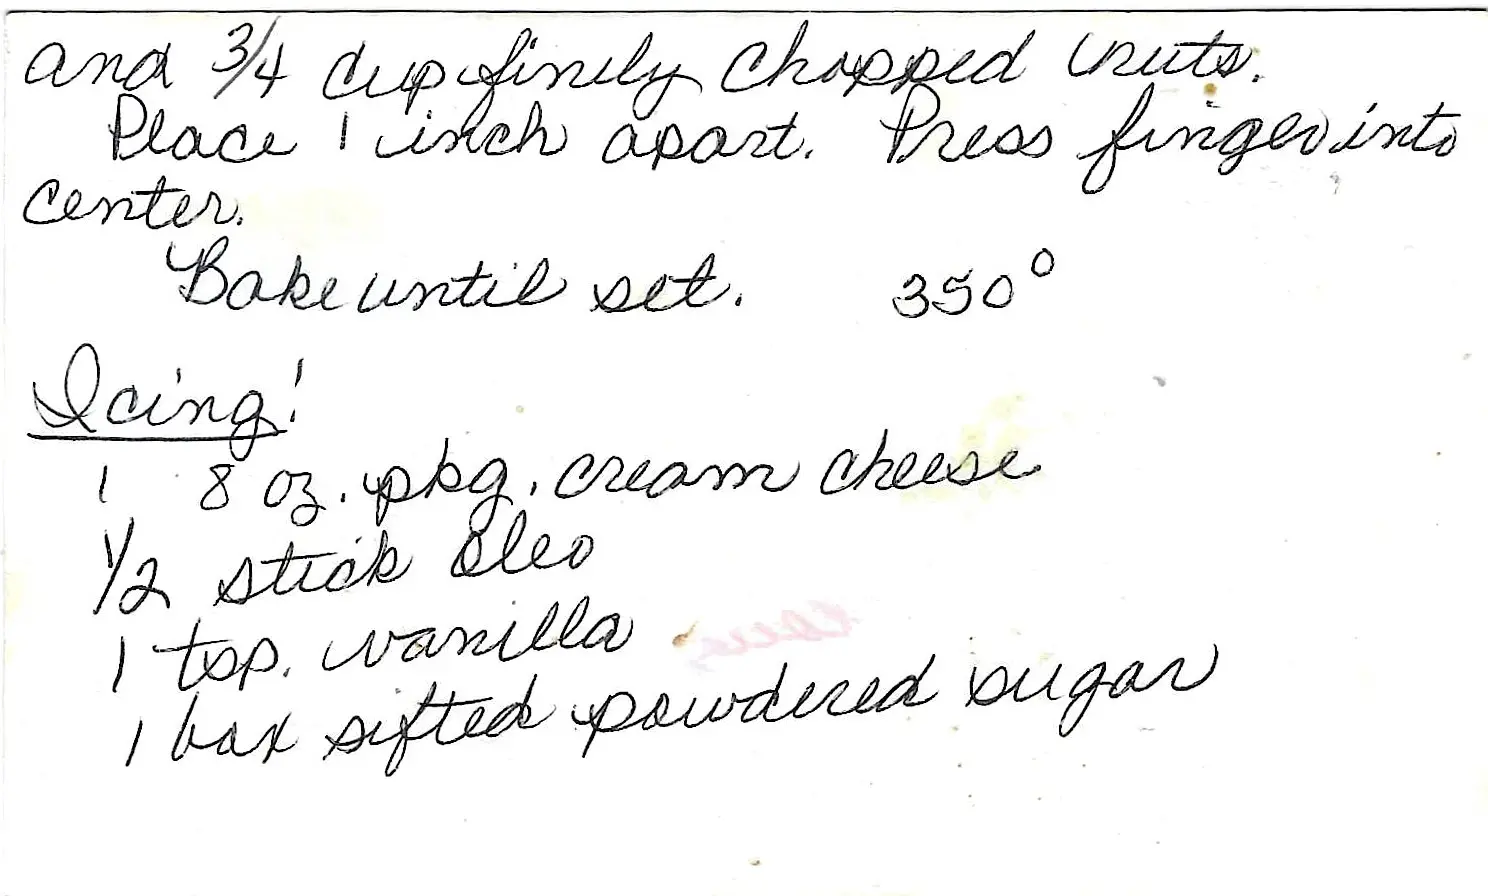 and 3/4 cup finely chopped nuts.
Place 1 inch apart. Press finger into
center.
Bake until set. 350°
Icing!
1 8 oz. pkg. cream cheese
1/2 stick Oleo
1 tsp. vanilla
1 box sifted powdered sugar